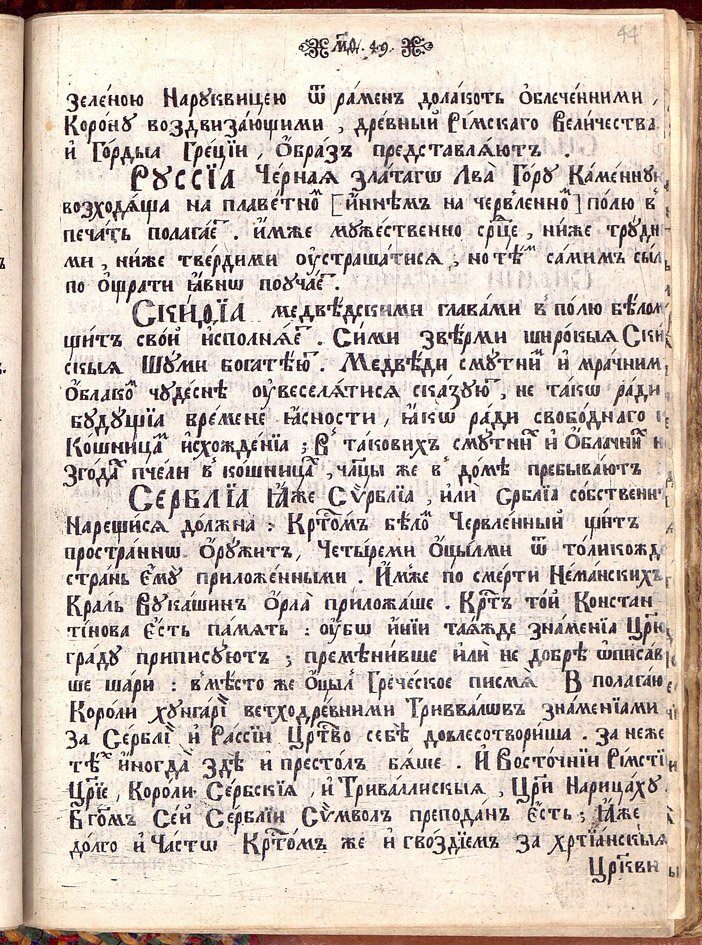 м҃д. 49.
44
зеле́ною Нарꙋквицею ѿ ра́менъ дола́коть ѻ҆блече́нными,
Коро́нꙋ воздвиза́ющими, дре́вный Рі́мскаго Вели́чества
и҆ Го́рдыѧ Гре́цїи, Ѻ҆́бразъ представлѧ́ютъ.
РꙊССІ́А Че́рнаѧ зла́тагѡ Лва̀ Го́рꙋ Ка́меннꙋю
возходѧ́ща на плаве́тноⷨ [и҆ннѣ́мъ на черв́ленноⷨ] по́лю въ
печа́ть полага́еⷮ. и҆́мже мꙋ́жественно срⷣце, ни́же трꙋдн
ми, ни́же тве́рдими оу҆страша́тисѧ, но тѣⷨ сами́мъ сы́л
по ѡ҆щрати ꙗ҆́внѡ поꙋча́еⷮ.
СКИ́ѲЇА медвѣ́дскими глава́ми в̾ по́лю бѣ́лоⷨ
щи́тъ сво́й и҆сполнѧ́еⷮ. Си́ми ѕвѣ́рми широ́кыѧ Ски
скыѧ Шꙋми богатѣ́юⷮ. Медвѣ́ди смꙋ́тниⷨ и҆ мра́чним
Ѻ҆́блакоⷨ чꙋде́снѣ оу҆веселѧ́тисѧ ска́зꙋюⷮ, не та́кѡ ра́ди
бꙋ́дꙋщїа вре́мене ꙗ҆́сности, ꙗ҆́кѡ ра́ди свобо́днаго
Ко́шницаⷨ и҆схожде́нїа; В̾ такови́хъ смꙋ́тниⷯ и҆ Ѻ҆́блачниⷯ н
Згодаⷯ пче́ли в̾ ко́шницаⷯ, ча́цы же в̾ до́мѣ пребыва́ютъ
СЕ́РБЛЇА Ꙗ҆́же Сѵ́рблїа, и҆лѝ Србла́їа со́бственнѣ
Нарещи́сѧ должна̀: Крⷭ҇то́мъ бѣ́лоⷨ Черв́ленный щи́тъ
простра́ннѡ Ѻ҆рꙋ́житъ, Четы́реми Ѻ҆цы́лми ѿ то́ликождⷷ
стра́нъ є҆мꙋ̀ приложе́нными. И҆́мже по сме́рти Нема́нскихъ
Кра́ль Вꙋка́шинъ Ѻ҆рла̀ приложа́ше. Крⷭ҇тъ то́й Констан
ті́нова є҆́сть па́мѧть: оу҆́бѡ и҆́ныи таѧ́жде зна́менїа Црⷭ҇кⷨ
гра́дꙋ приписꙋю́тъ; премѣни́вше и҆лѝ не до́брѣ ѡ҆писа́в
ше ша́ри: вмѣ́сто же Ѻ҆цы́лъ Гре́ческое писмѧ̀ В полага́ю
Короли хꙋнгарⷭ҇тїи ветходре́вними Тривва́лѡвъ зна́менїами
За Се́рблїю и҆ Ра́ссїи Црⷭ҇тво себѣ̀ довлесотвори́ша. за не́же
тѣⷯ и҆ногда̀ здѣ̀ и҆ престо́лъ бѧ́ше. И҆ Восто́чнїи Рі́мстїи
Цр҃їе, Короли Се́рбскїѧ, и҆ Трива́ллискыѧ, Цр҃и Нарица́хꙋ.
Бг҃омъ Се́й Се́рблїи Сѵ́мволъ преподанъ є҆́сть; Ꙗ҆́же
до́лго и҆ Ча́стѡ Крⷭ҇то́мъ же и҆ гво́здїемъ за хрⷭ҇тїа́нскыѧ
Цр҃кви